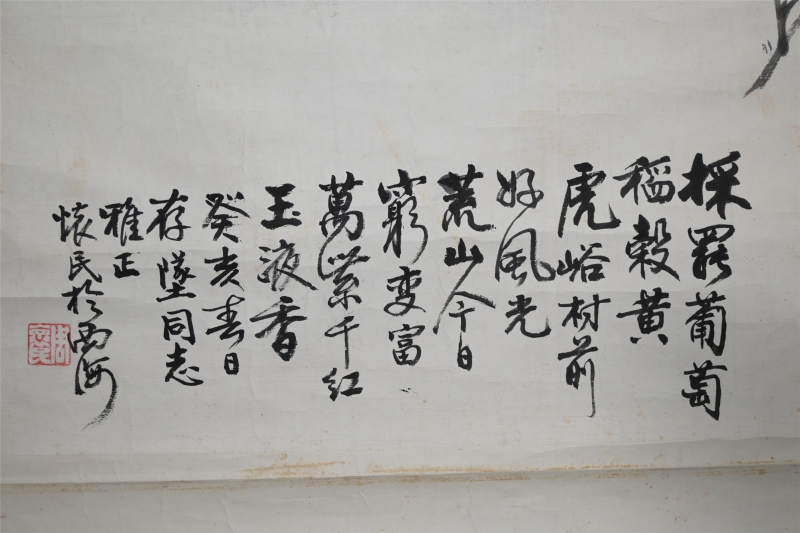 採罷葡萄
稻榖黄
虎峪村前
好風光
荒山今日
窮变富
萬紫千红
玉液香
癸亥春日
存墜同志
雅正
懷民於西海